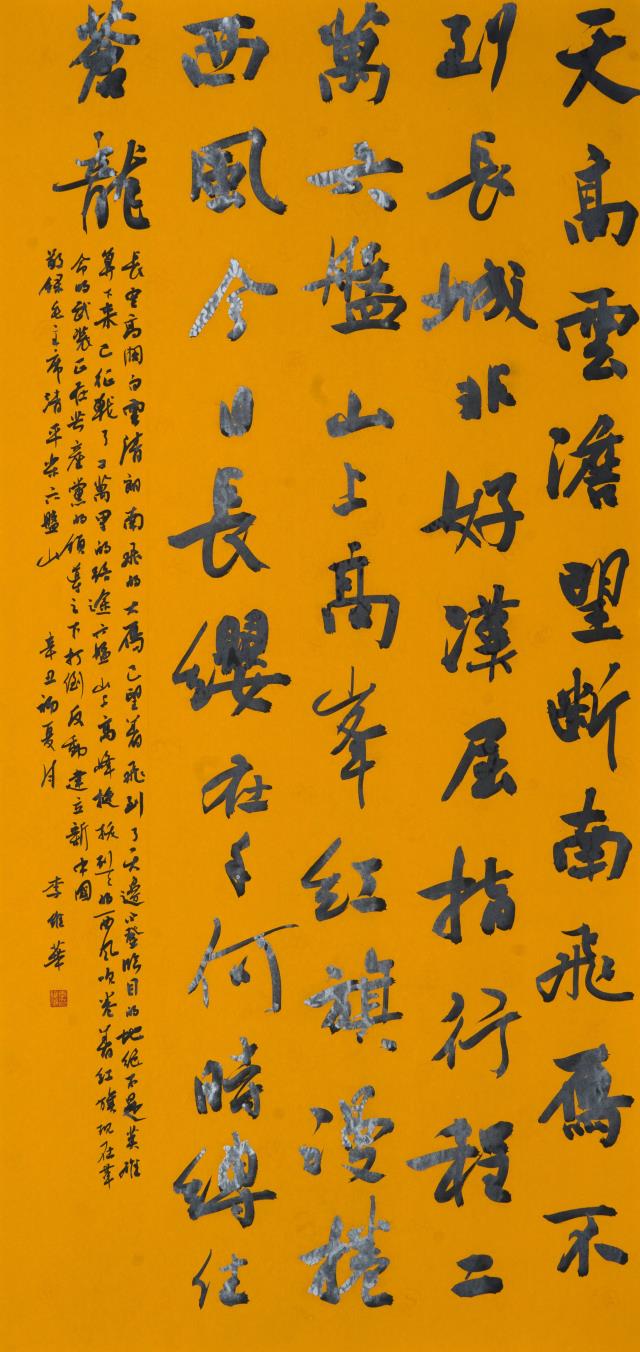 天高雲澹望斷南飛雁不
到長城非好漢屈指行程二
萬六盤山上高峯紅旗漫捲
西風今日長纓在手何時縛住
蒼龍
長空高闊白雲清朗南飛的大雁已望着飛到了天邊不登臨目的地絕不是英雄
算下來已征戰了二萬里的路途六盤山上高峰挺拔烈烈的西風吹卷着紅旗現在革
命的武裝正在共產黨的領導之下打倒反動建立新中國
敬錄毛主席清平樂六盤山 辛丑初夏月 李維華